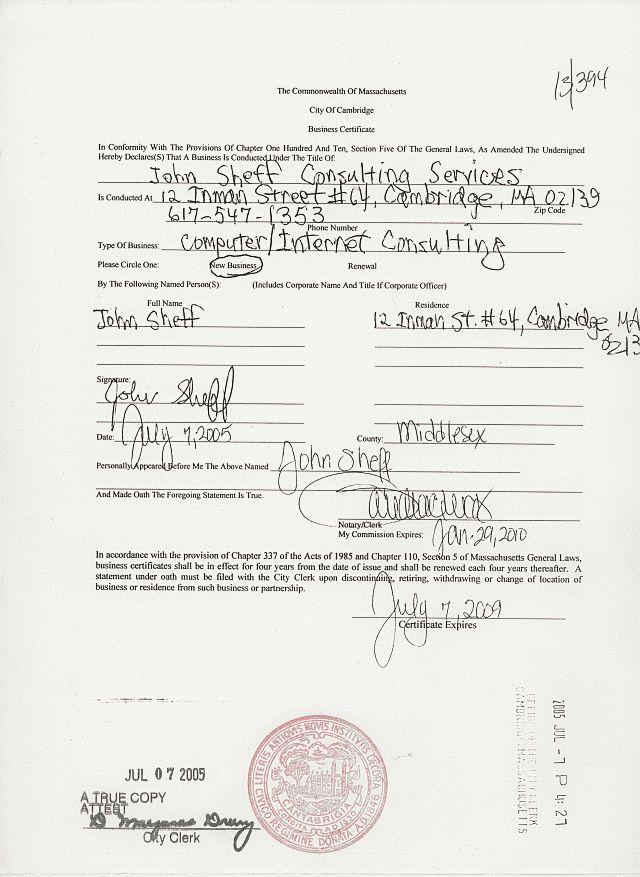 13/394
The Commonwealth Of Massachusetts
City Of Cambridge
Business Certificate
In Conformity With The Provisions Of Chapter One Hundred And Ten, Section Five Of The General Laws, As Amended The Undersigned
Hereby Declares(S) That A Business Is Conducted Under The Title Of:
John Sheff Consulting Services
Is Conducted At 12 Inman Street #64, Cambridge, MA 02139
Zip Code
617-547-1353
Phone Number
Type Of Business: Computer/Internet Consulting
Please Circle One: New Business Renewal
By The Following Named Person(S): (Includes Corporate Name And Title If Corporate Officer)
Full Name Residence
John Sheff 12 Inman St. #64, Cambridge MA
0213
Signature:
John Sheff
Date: July 7, 2005 County: Middlesex
Personally Appeared Before Me The Above Named John Sheff
And Made Oath The Foregoing Statement Is True.
Notary/Clerk
My Commission Expires: Jan. 29, 2010
In accordance with the provision of Chapter 337 of the Acts of 1985 and Chapter 110, Section 5 of Massachusetts General Laws,
business certificates shall be in effect for four years from the date of issue and shall be renewed each four years thereafter. A
statement under oath must be filed with the City Clerk upon discontinuing, retiring, withdrawing or change of location of
business or residence from such business or partnership.
July 7, 2009
Certificate Expires
JUL 07 2005
A TRUE COPY
ATTEST
D. Margaret Drury
City Clerk
LITERIS ANTIQUIS NOVIS INSTITUTIS DECORA
CIVICO REGIMINE DONATA AD 1846
CANTABRIGIA
2005 JUL -7 P 4: 27
OFFICE OF THE CITY CLERK
CAMBRIDGE, MASSACHUSETTS